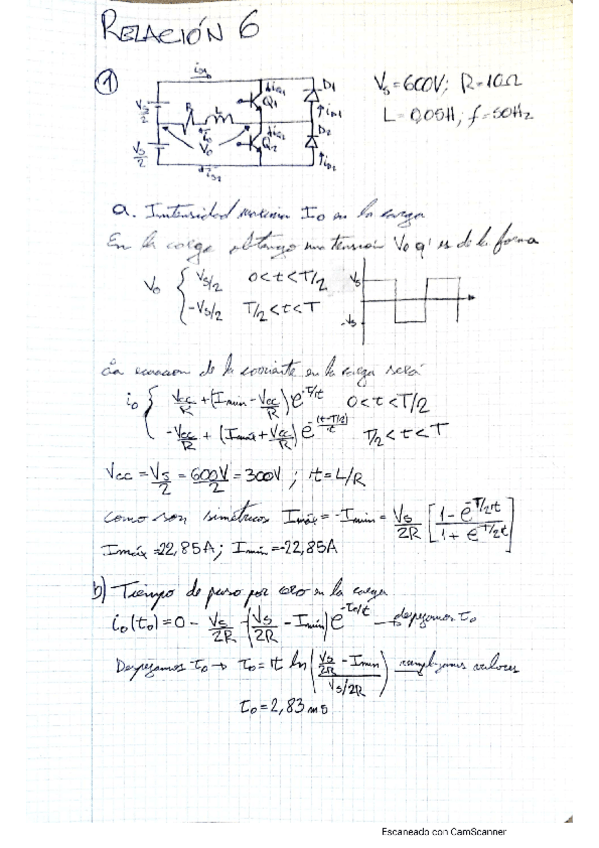 RELACIÓN 6
① Vs=600V; R=10Ω
L=0,05H; f=50Hz
is1
Vs/2
R L
io
Vo
Q1
D1
iD1
Vs/2
Q2
D2
iD2
is2
a. Intensidad maxima Io en la carga
En la carga obtengo una tensión Vo q' es de la forma
Vo { Vs/2 0<t<T/2
-Vs/2 T/2<t<T
Vs
-Vs
La ecuacion de la corriente en la carga será
io { Vcc/R + (Imin - Vcc/R) e^-T/t 0<t<T/2
-Vcc/R + (Imáx + Vcc/R) e^-(t-T/2)/t T/2<t<T
Vcc = Vs/2 = 600V/2 = 300V ; τ = L/R
como son simétricos Imáx = -Imin = Vs/2R [1 - e^-T/2τ / 1 + e^-T/2τ]
Imáx = 22,85A ; Imin = -22,85A
b) Tiempo de paso por cero en la carga
io(to) = 0 - Vs/2R - (Vs/2R - Imin) e^-to/t → despejamos to
Despejamos to → to = τ ln (Vs/2R - Imin / Vs/2R) valores
to = 2,83 ms
Escaneado con CamScanner